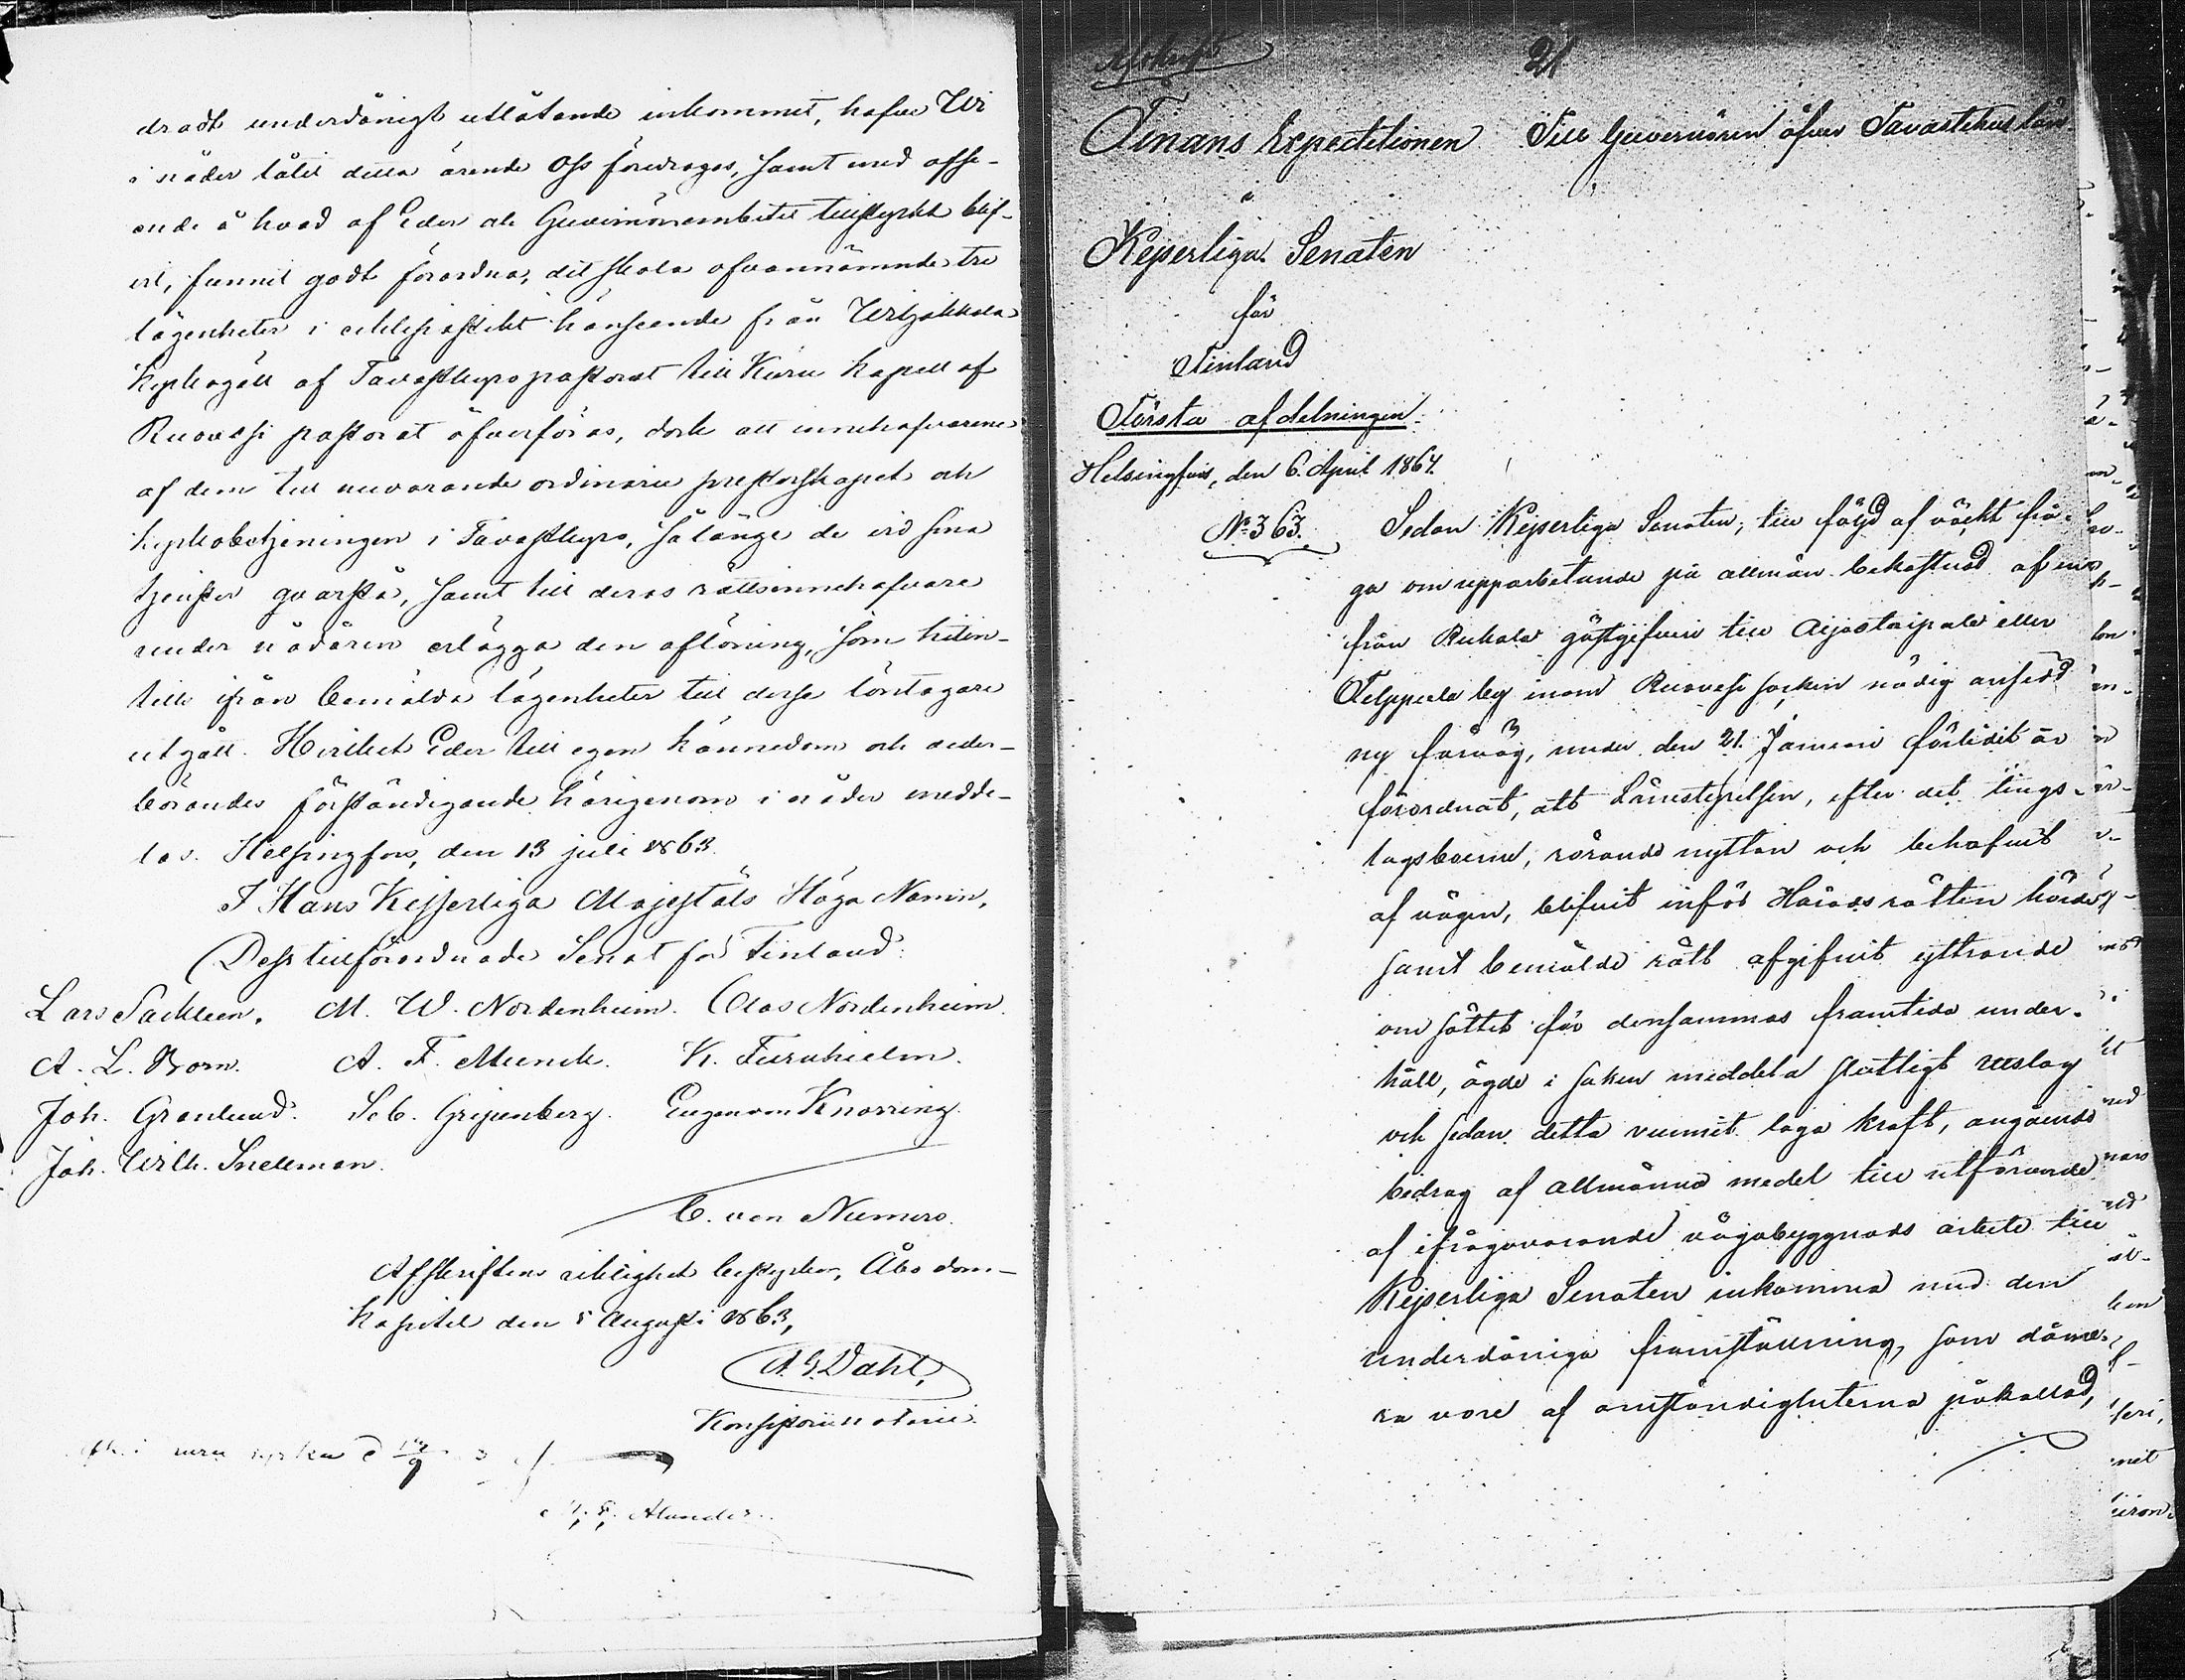 dradt underdånigt utlåtande inkommit, hafve Wi
i nåder låtit detta ärende Oss föredragas, samt med afse-
ende å hvad af Eder och Guvernörsembetet tillstyrkt blif-
vit, funnit godt förordna, det skola ofvannämnde tre
lägenheter i ecklesiastikt hänseende från Wiljakkala
kyrkogäll af Tavastkyro pastorat till Kuru kapell af
Ruovesi pastorat öfverföras, dock att innehafvarene
af dem till nuvarande ordinarie presterskapet och
kyrkobetjeningen i Tavastkyro, så länge de vid sina
tjenster qvarstå, samt till deras rättsinnehafvare
under nådåren erlägga den aflöning, som hitin-
tills ifrån bemälda lägenheter till desse löntagare
utgått. Hvilket Eder till egen kännedom och veder-
börandes förständigande härigenom i nåder medde-
las. Helsingfors, den 13 juli 1863.
I Hans Kejserliga Majestäts Höga Namn,
Dess tillförordnade Senat för Finland:
Lars Sackleen. M. W. Nordenheim. Clas Nordenheim.
A. L. Born. A. F. Munck. K. Furuhielm.
Joh. Granlund. Seb. Gripenberg. Eugen von Knorring.
Joh. Wilh. Snellman.
C. von Numers.
Afskriftens riktighet bestyrker, Åbo dom-
kapitel den 5 Augusti 1863,
A. G. Dahl,
Konsistorii notarie.
kyrkan d
Alander.
Afskrift
21
Finans Expeditionen Till Guvernören öfver Tavastehus län.
i
Kejserliga Senaten
för
Finland
Första afdelningen.
Helsingfors, den 6. April 1864.
No 363. Sedan Kejserliga Senaten, till följd af väckt frå-
ga om upparbetande på allmän bekostnad af en
från Ruhala gästgifveri till Aijostaipale eller
Telppula by inom Ruovesi socken nödig ansedd
ny farväg, under den 21. Januari förlidet år
förordnat, att Länestyrelsen, efter det tings-
lagsboerne, rörande nyttan och behofvet
af vägen, blifvit inför Häradsrätten hörde
samt bemälde rätt afgifvit yttrande
om sättet för densammas framtida under-
håll, ägde i saken meddela slutligt utslag
och sedan detta vunnit laga kraft, angående
bidrag af allmänna medel till utförande
af ifrågavarande vägabyggnads arbete till
Kejserliga Senaten inkomma med den
underdåniga framställning, som däme-
ra vore af omständigheterna påkallad,